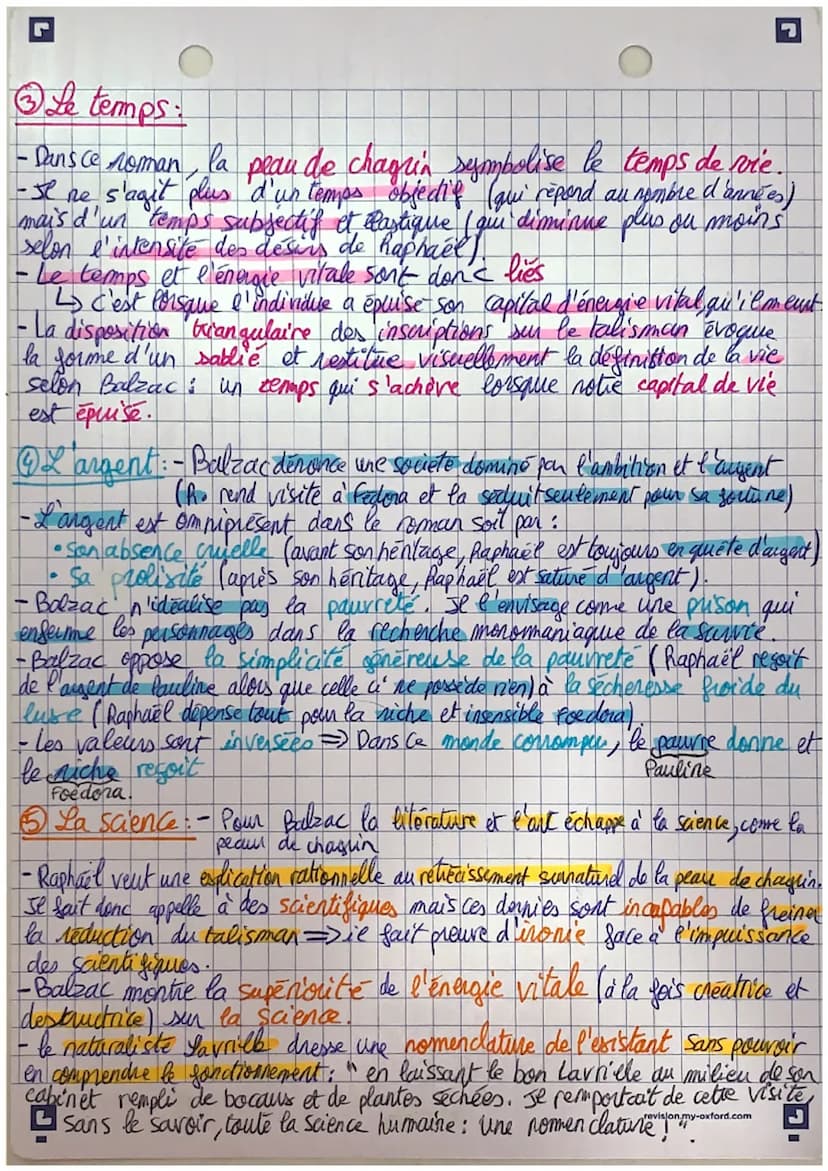 ③ Le temps:
- Dans ce roman, la peau de chagrin symbolise le temps de vie.
- Il ne s'agit plus d'un temps objectif (qui répond au nombre d'années)
mais d'un temps subjectif et elastique (qui diminue plus ou moins
selon l'intensité des désirs de Raphaël).
- Le temps et l'énergie vitale sont donc liés
↳ C'est lorsque l'individue a épuise son capital d'énergie vital, qu'il meurt.
- La disposition triangulaire des inscriptions sur le talisman évoque
la forme d'un sablié et restitue visuellement la définition de la vie
selon Balzac : un temps qui s'achève lorsque notre capital de vie
est épuisé.
④ L'argent : - Balzac dénonce une société dominé par l'ambition et l'argent
(R. rend visite à Fedora et la séduit seulement pour sa fortune)
- L'argent est omniprésent dans le roman soit par :
• Son absence cruelle (avant son héritage, Raphaël est toujours en quête d'argent)
• Sa prolixité (après son héritage, Raphaël est saturé d'argent).
- Balzac n'idéalise pas la pauvreté. Il l'envisage come une prison qui
enferme les personnages dans la recherche monomaniaque de la survie.
- Balzac oppose la simplicité généreuse de la pauvreté (Raphaël reçoit
de l'argent de Pauline alors que celle ci ne possède rien) à la sécheresse froide du
luxe (Raphaël dépense tout pour la riche et insensible Foedora).
- Les valeurs sont inversées => Dans ce monde corrompu, le pauvre donne et
le riche reçoit
Pauline
Foedora.
⑤ La science : - Pour Balzac la litérature et l'art échappe à la science, come la
peau de chagrin
- Raphaël veut une explication rationnelle au rétrécissement surnaturel de la peau de chagrin.
Il fait donc appelle à des scientifiques mais ces dernies sont incapables de freiner
la réduction du talisman => ie fait preuve d'ironie face à l'impuissance
des scientifiques.
- Balzac montre la supériorité de l'énergie vitale (à la fois créattrice et
destructrice) sur la science.
- le naturaliste Lavrille dresse une nomenclature de l'existant sans pouvoir
en comprendre le fonctionnement : " en laissant le bon Lavrielle au milieu de son
cabinet rempli de bocaux et de plantes séchées. Il remportait de cette visite,
revision.my-oxford.com
Sans le savoir, toute la science humaine : Une nomenclature ! ".